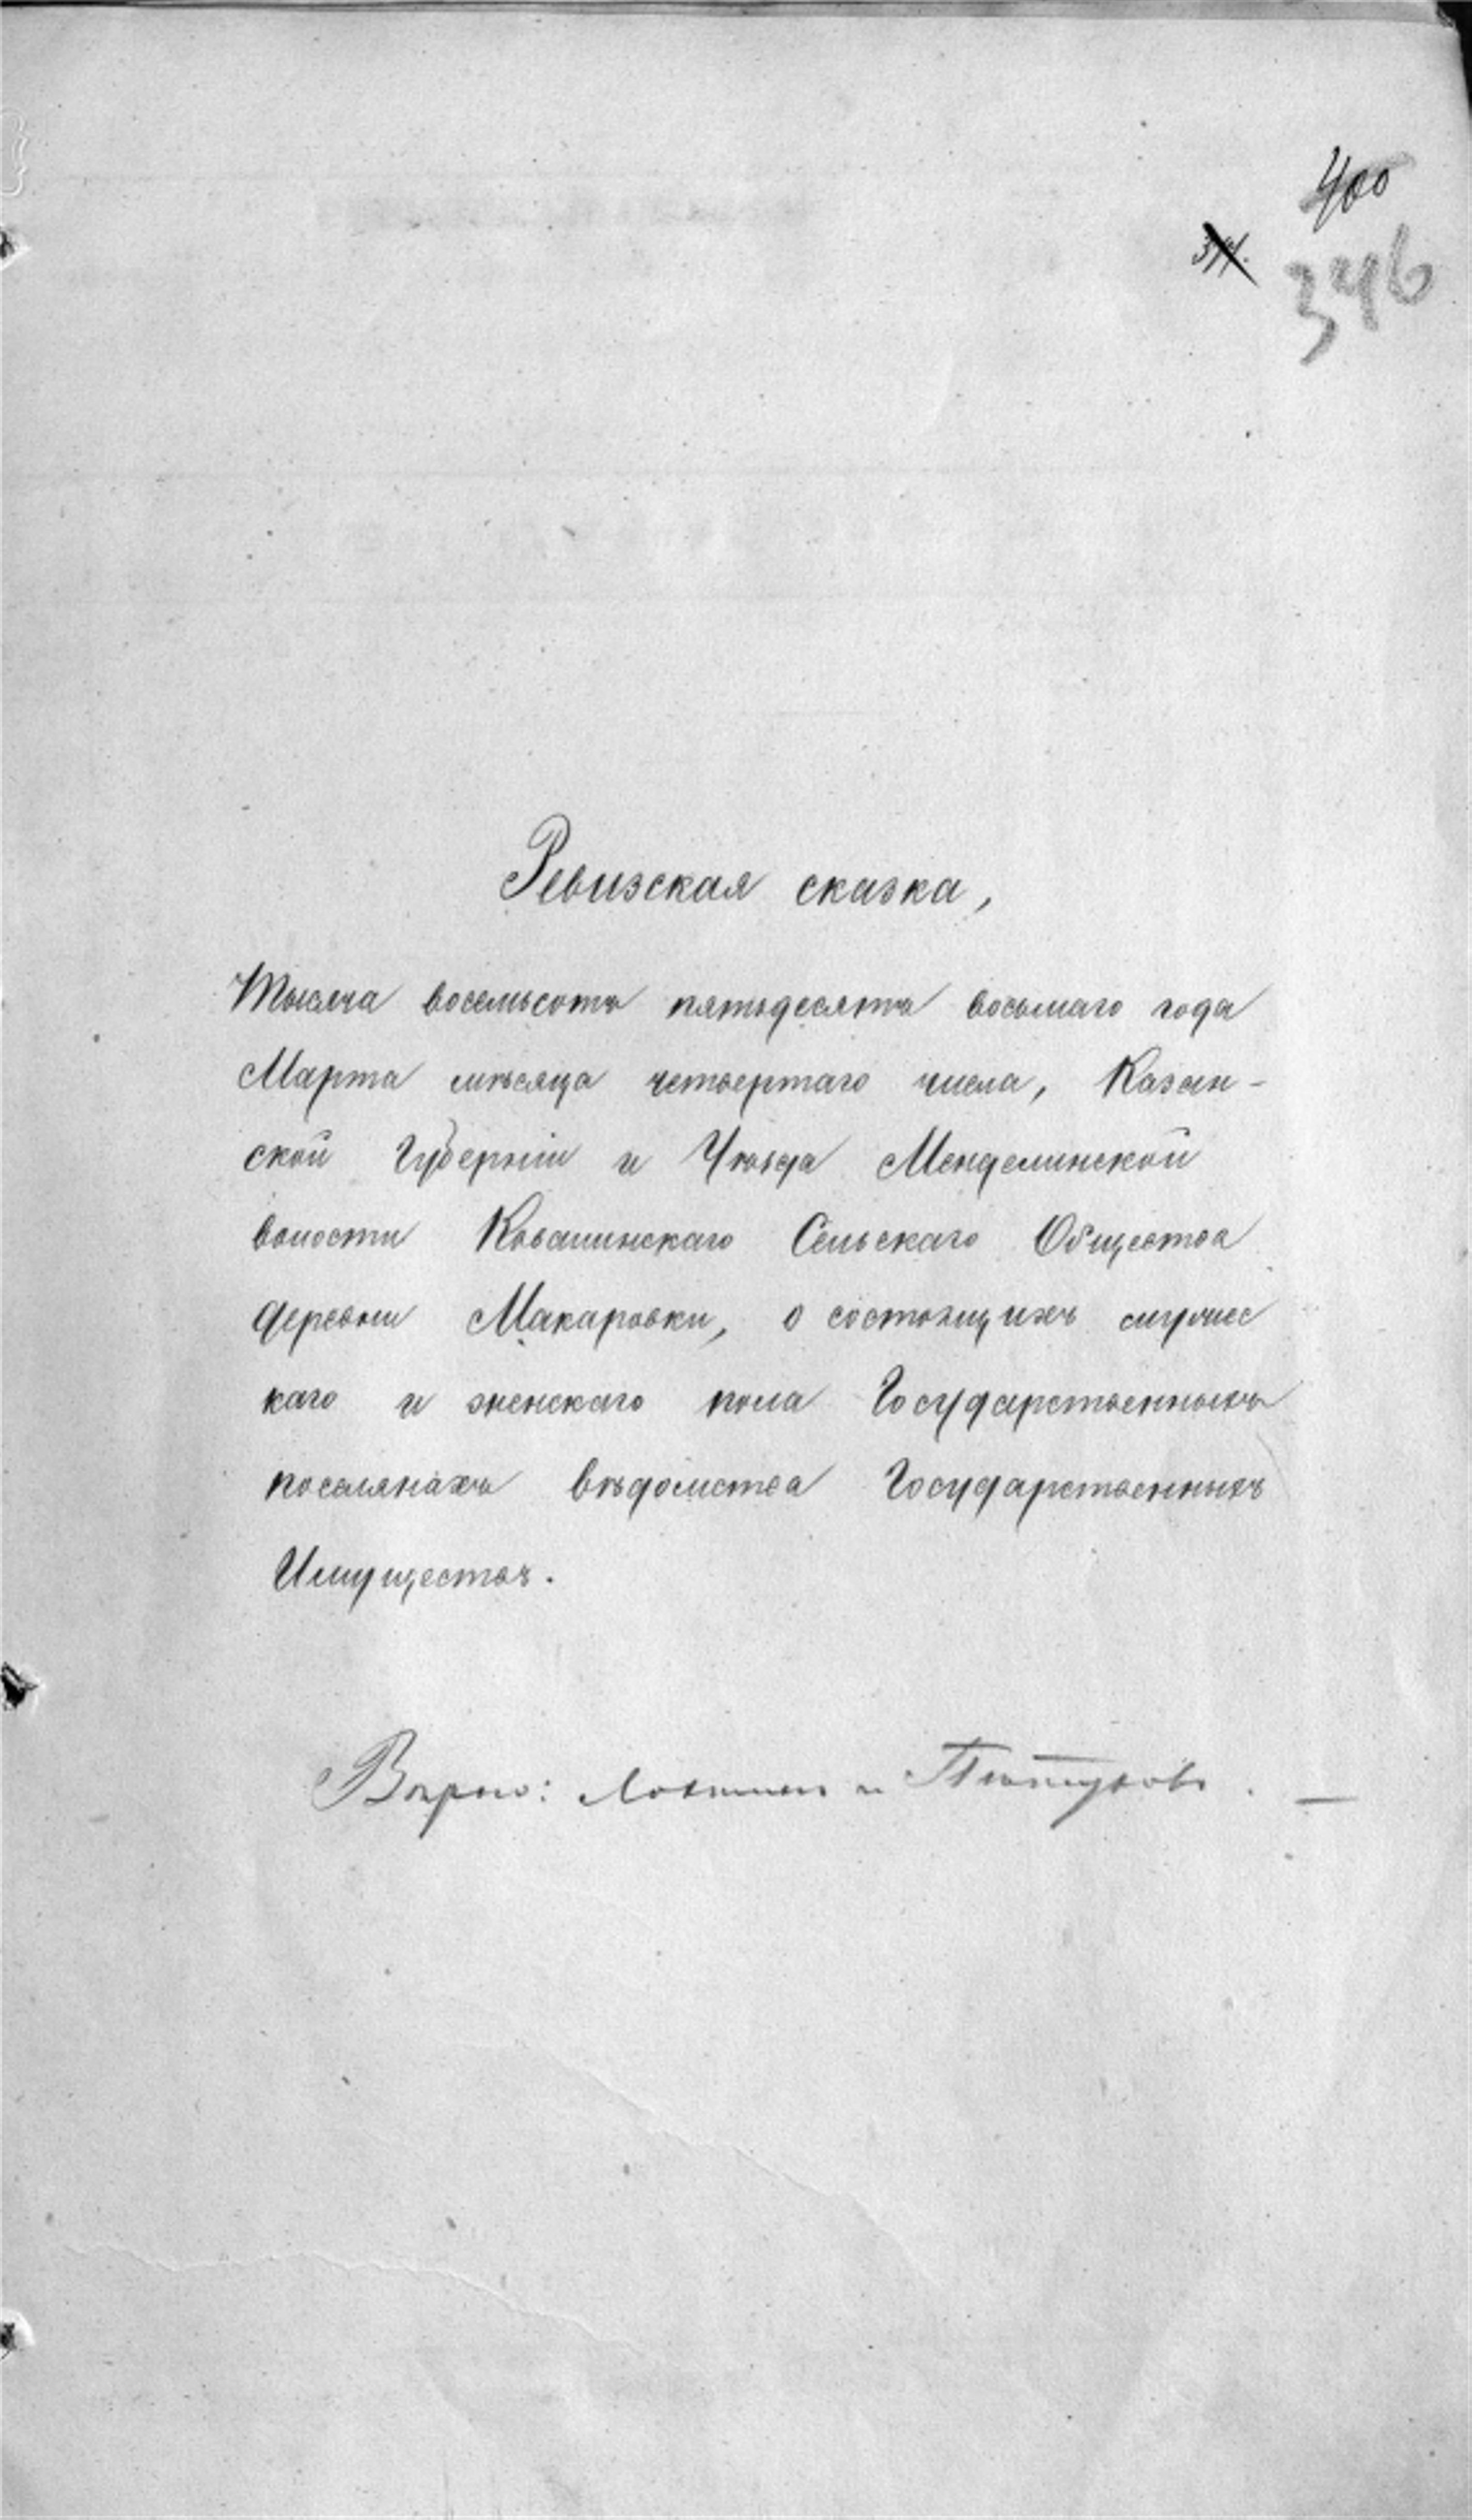 400
346
Ревизская сказка,
Тысяча восемьсотъ пятьдесятъ восьмаго года
Марта мѣсяца четвертаго числа, Казан-
ской Губерніи и Уѣзда Менделинской
волости Ковалинскаго Сельскаго Общества
деревни Макаровки, о состоящихъ мужес
каго и женскаго пола Государственныхъ
поселянахъ вѣдомства Государственныхъ
Имуществъ.
Вѣрно: и